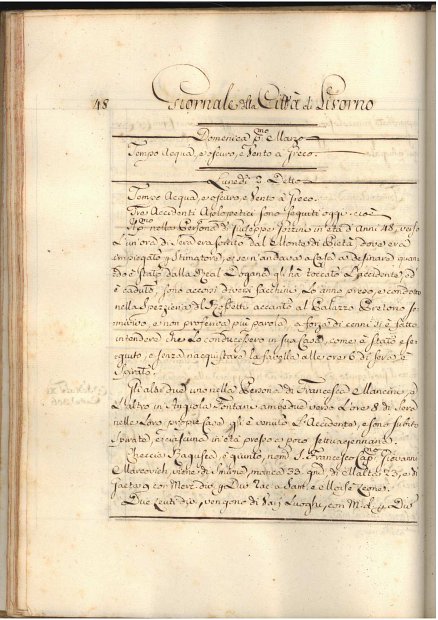 48 Giornale della Città di Livorno
Domenica p.mo Marzo
Tempo Acqua, e oscuro, e Vento a Greco.
Lunedì 2 Detto
Tempo Acqua, e oscuro, e Vento a Greco.
Tre Accidenti Apopletici sono seguiti oggi cioè
P.mo nella Persona di Giuseppe in età d'Anni 48, verso
un'ora di Sera era sortito dal Monte di Pietà dove era
impiegato p. Stimatore, e se n'andava a Casa a desinare quan
do è stato dalla Real Dogana gl'ha toccato l'Accidente, ed
è caduto, sono accorsi diversi facchini, Lo anno preso, e condotto
nella Spezieria del accanto al Palazzo Pretorio
e non proferiva più parola, a forza di cenni si è fatto
intendere che Lo conducessero in sua Casa, come è stato ese
guito, e senza riacquistare la favella alle ore 6 di sera è
Spirato.
Gl'altri due, uno nella Persona di Francesca Mancini, e
L'altro in Angiola Fontani ambedue verso L'ore 8 di Sera
nelle Loro proprie case gl'è venuto L'Accidente, e sono subito
Spirate, e ciascuna in età presso a poco settuagennaria.
Checcia Ragusea, è giunto, nom.ta S. Francesco Cap.no Giovanni
Marcovich, viene di Smirne, manca 33 gni. di Malta 23, e di
Gaeta 9 con Merc. div. p. Due Rac. a Sant. e Moisè Leone.
Due Leuti div. vengono di Varj Luoghi, con M. d. p. Div.